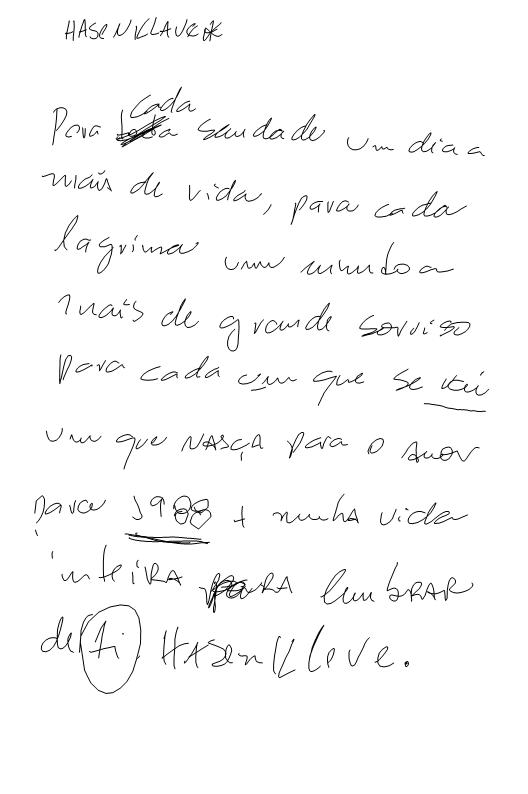 HASENKLAVER
Para cada saudade um dia a
mais de vida, para cada
lagrima um mundo a
mais de grande sorriso
para cada um que se vai
um que NASÇA para o amor
para 1988 + minha vida
inteiRA paRA lembRAR
de ti HASenKLeve.